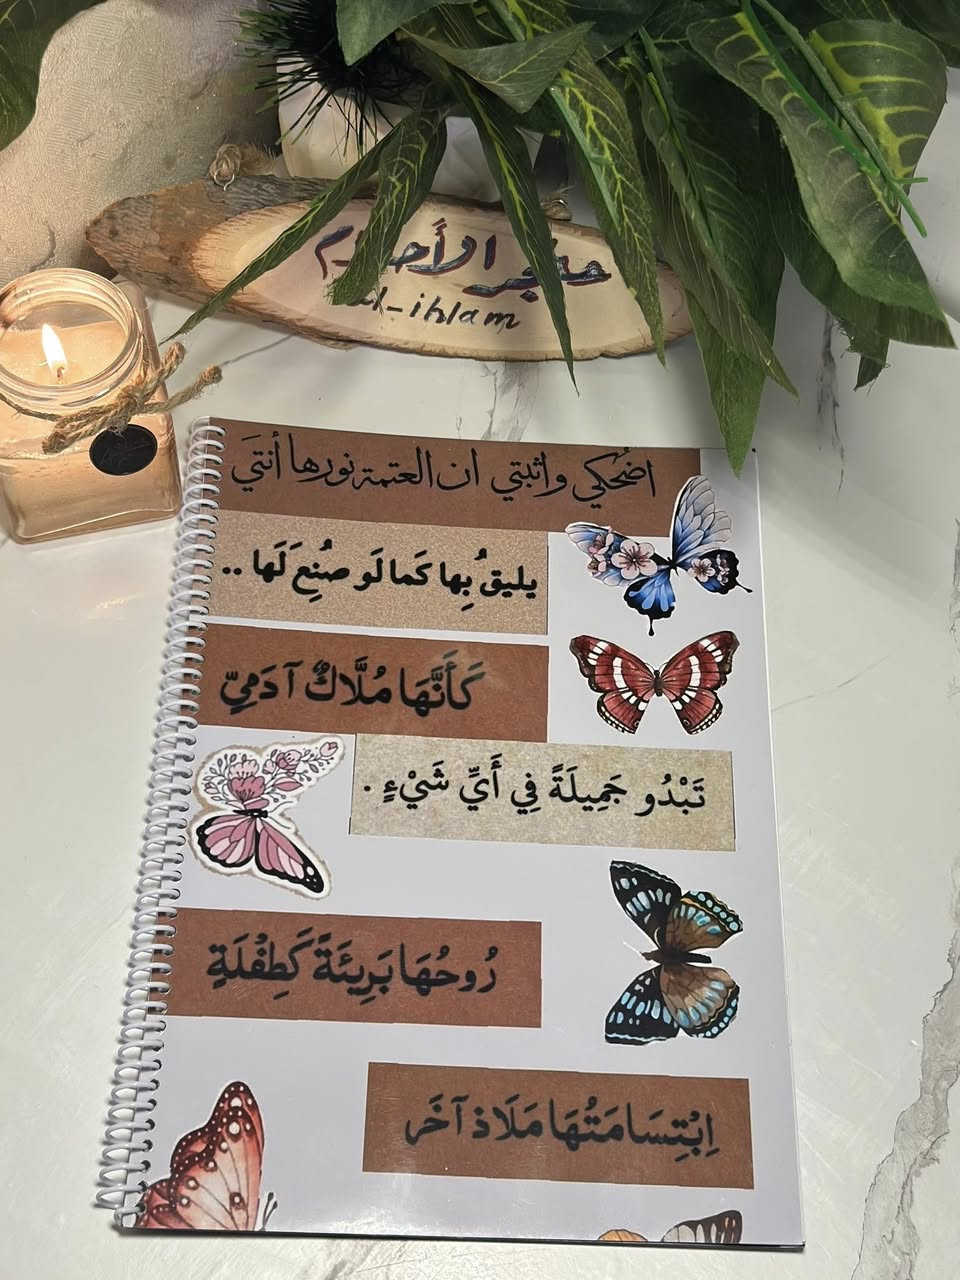 متجر الأحلام
al-ihlam
اضحكي واثبتي ان العتمة نورها أنتي
يليقُ بِها كَما لَو صُنِعَ لَها ..
كَأَنَّهَا مُلَّاكٌ آدَمِيّ
تَبْدُو جَمِيلَةً فِي أَيِّ شَيْءٍ .
رُوحُهَا بَرِيئَةً كَطِفْلَةٍ
اِبْتِسَامَتُهَا مَلَاذ آخَر